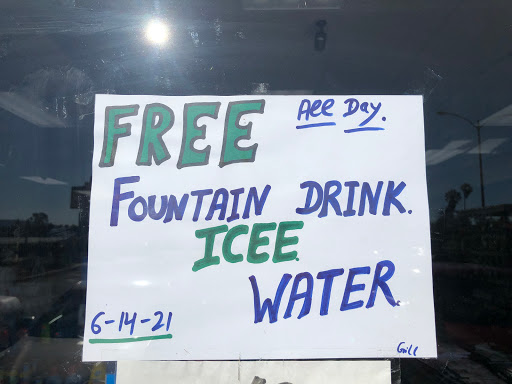 FREE All Day.
FOUNTAIN DRINK.
ICEE
WATER
6-14-21
Gill